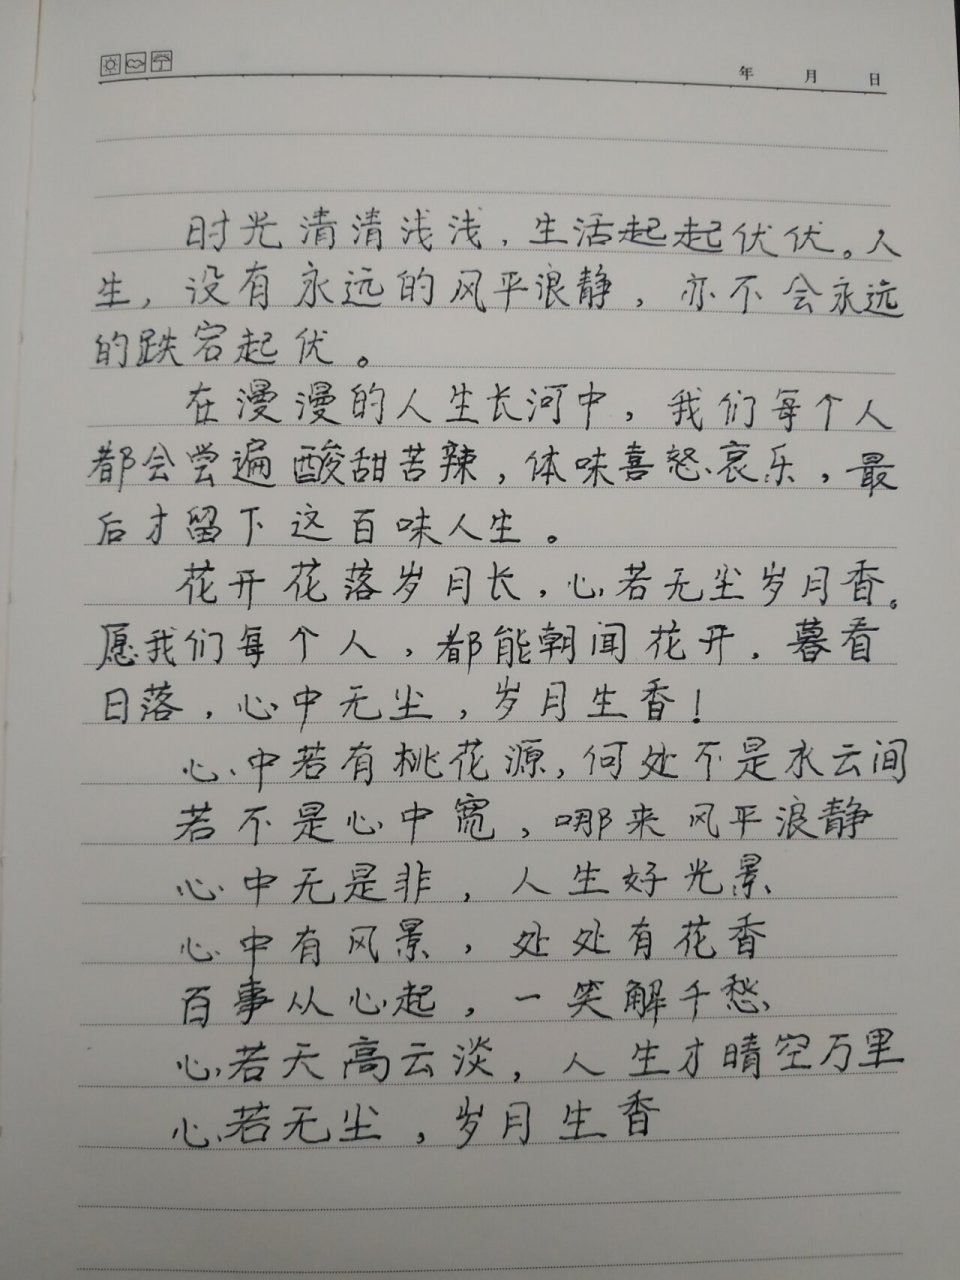 年 月 日
时光清清浅浅，生活起起伏伏。人
生，没有永远的风平浪静，亦不会永远
的跌宕起伏。
在漫漫的人生长河中，我们每个人
都会尝遍酸甜苦辣，体味喜怒哀乐，最
后才留下这百味人生。
花开花落岁月长，心若无尘岁月香。
愿我们每个人，都能朝闻花开，暮看
日落，心中无尘，岁月生香！
心中若有桃花源，何处不是水云间
若不是心中宽，哪来风平浪静
心中无是非，人生好光景
心中有风景，处处有花香
百事从心起，一笑解千愁
心若天高云淡，人生才晴空万里
心若无尘，岁月生香